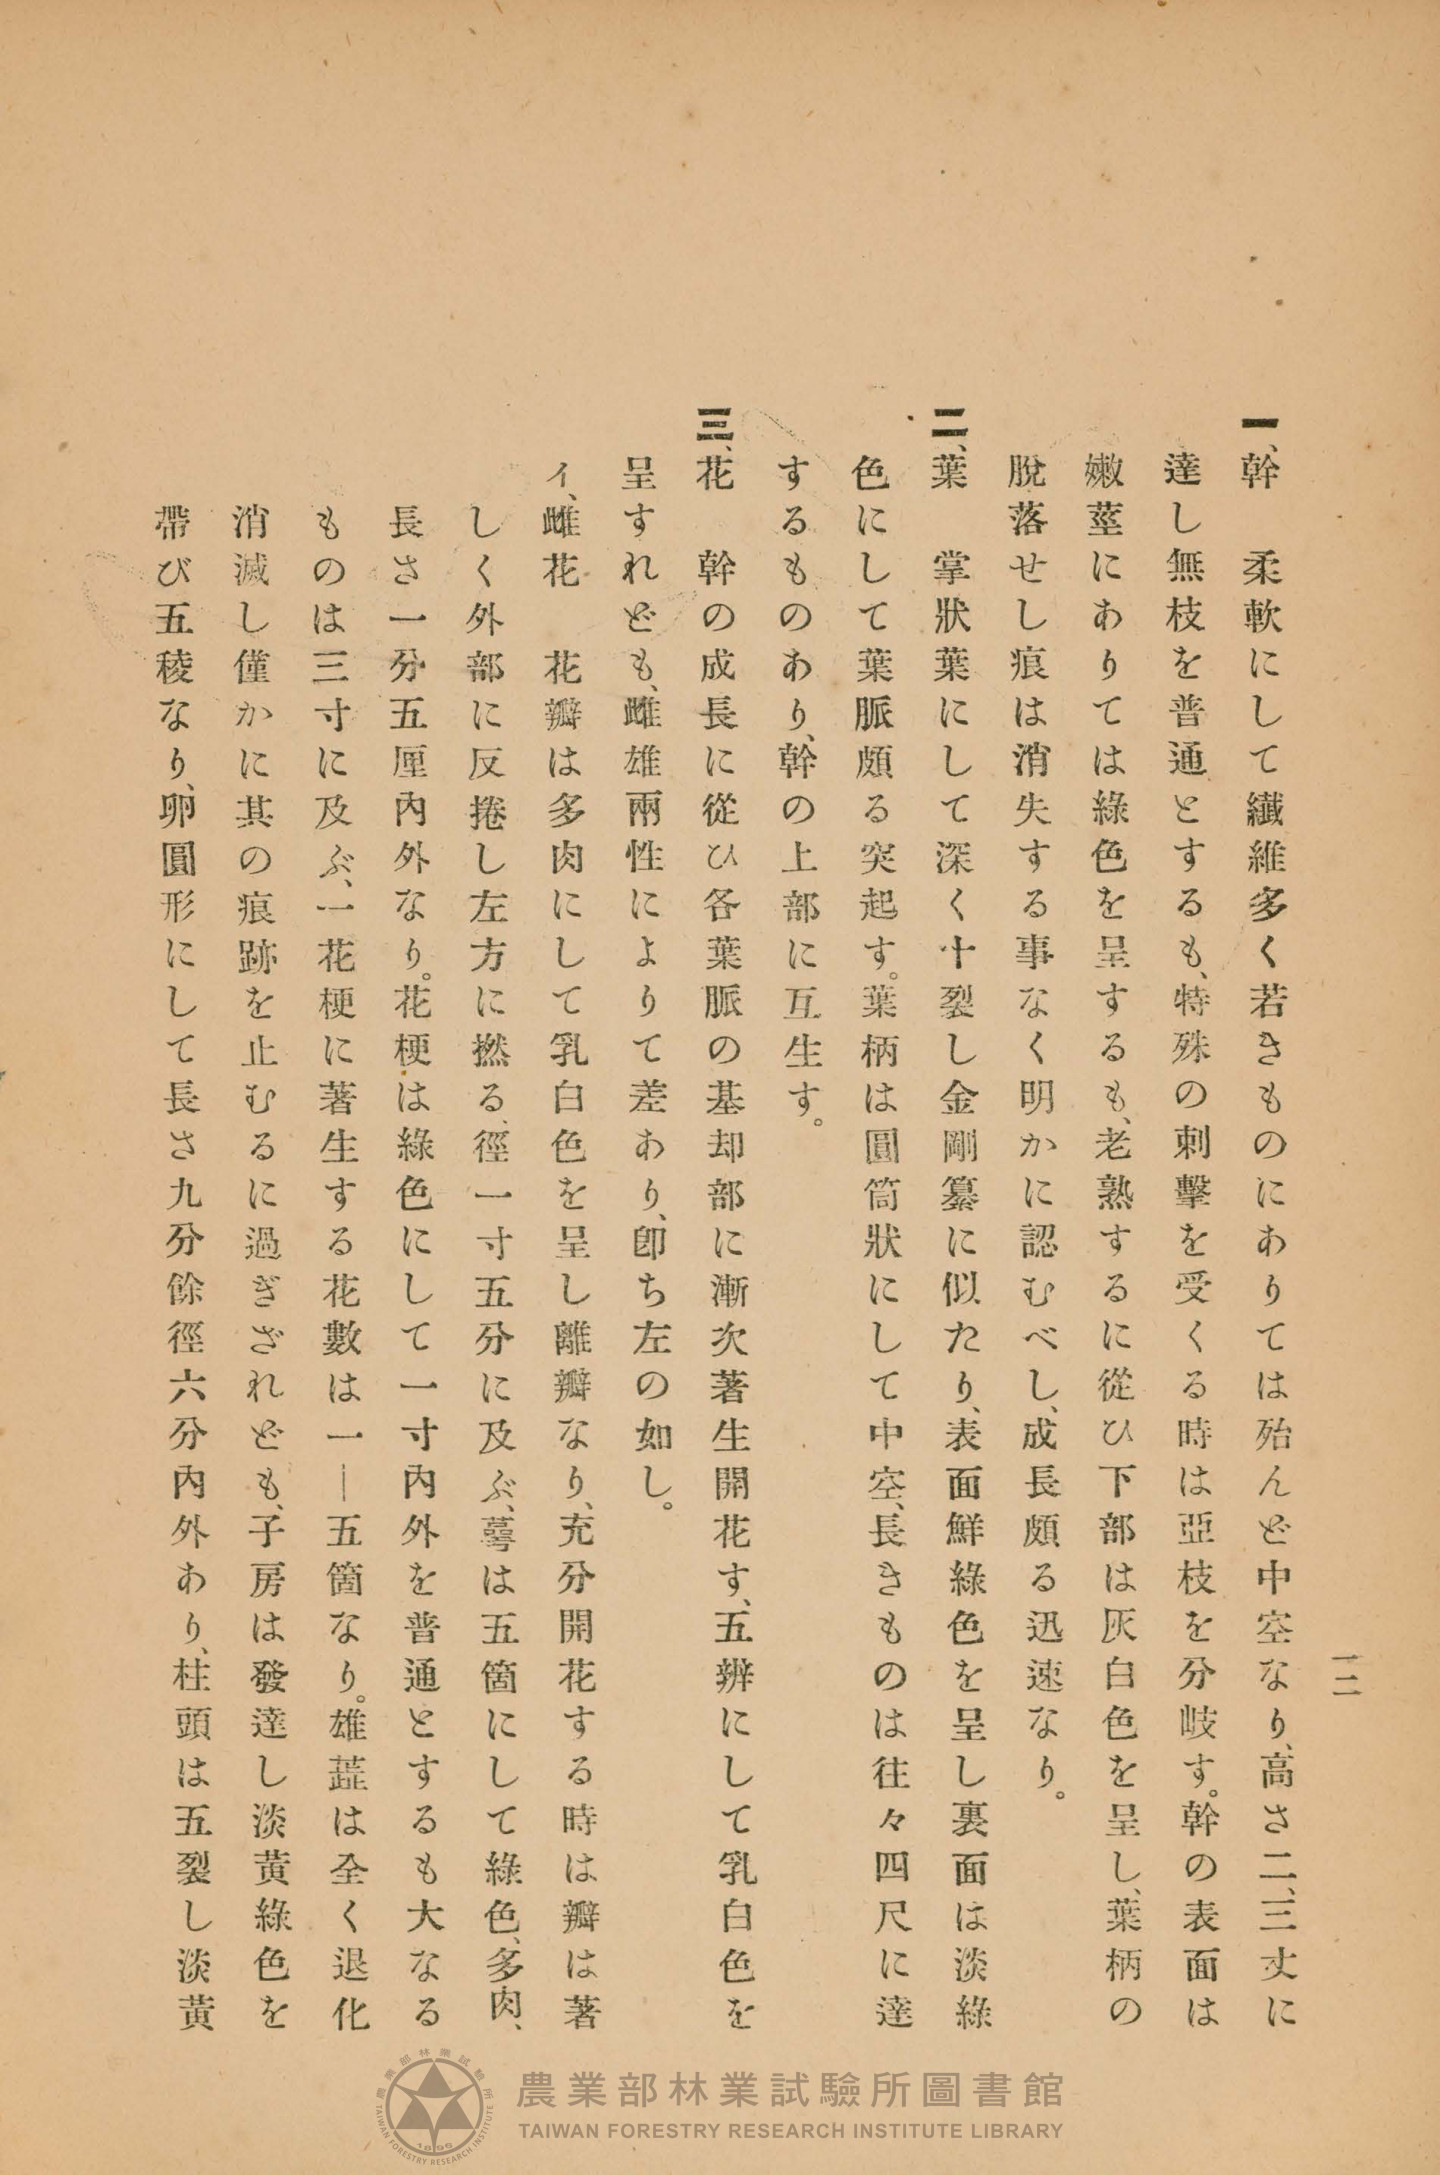 一二
一、幹　柔軟にして纖維多く若きものにありては殆んど中空なり、高さ二、三丈に
達し無枝を普通とするも、特殊の刺擊を受くる時は亞枝を分岐す。幹の表面は
嫩莖にありては綠色を呈するも、老熟するに從ひ下部は灰白色を呈し、葉柄の
脫落せし痕は消失する事なく明かに認むべし、成長頗る迅速なり。
二、葉　掌狀葉にして深く十裂し金剛纂に似たり、表面鮮綠色を呈し裏面は淡綠
色にして葉脈頗る突起す。葉柄は圓筒狀にして中空、長きものは往々四尺に達
するものあり、幹の上部に互生す。
三、花　幹の成長に從ひ各葉脈の基却部に漸次著生開花す、五辨にして乳白色を
呈すれども、雌雄兩性によりて差あり、卽ち左の如し。
イ、雌花　花瓣は多肉にして乳白色を呈し離瓣なり、充分開花する時は瓣は著
しく外部に反捲し左方に撚る、徑一寸五分に及ぶ、萼は五箇にして綠色、多肉、
長さ一分五厘內外なり。花梗は綠色にして一寸內外を普通とするも大なる
ものは三寸に及ぶ、一花梗に著生する花數は一—五箇なり。雄蕋は全く退化
消滅し僅かに其の痕跡を止むるに過ぎざれども、子房は發達し淡黄綠色を
帶び五稜なり、卵圓形にして長さ九分餘徑六分內外あり、柱頭は五裂し淡黄
農業部林業試驗所圖書館
TAIWAN FORESTRY RESEARCH INSTITUTE LIBRARY
農業部林業試驗所
TAIWAN FORESTRY RESEARCH INSTITUTE
1896